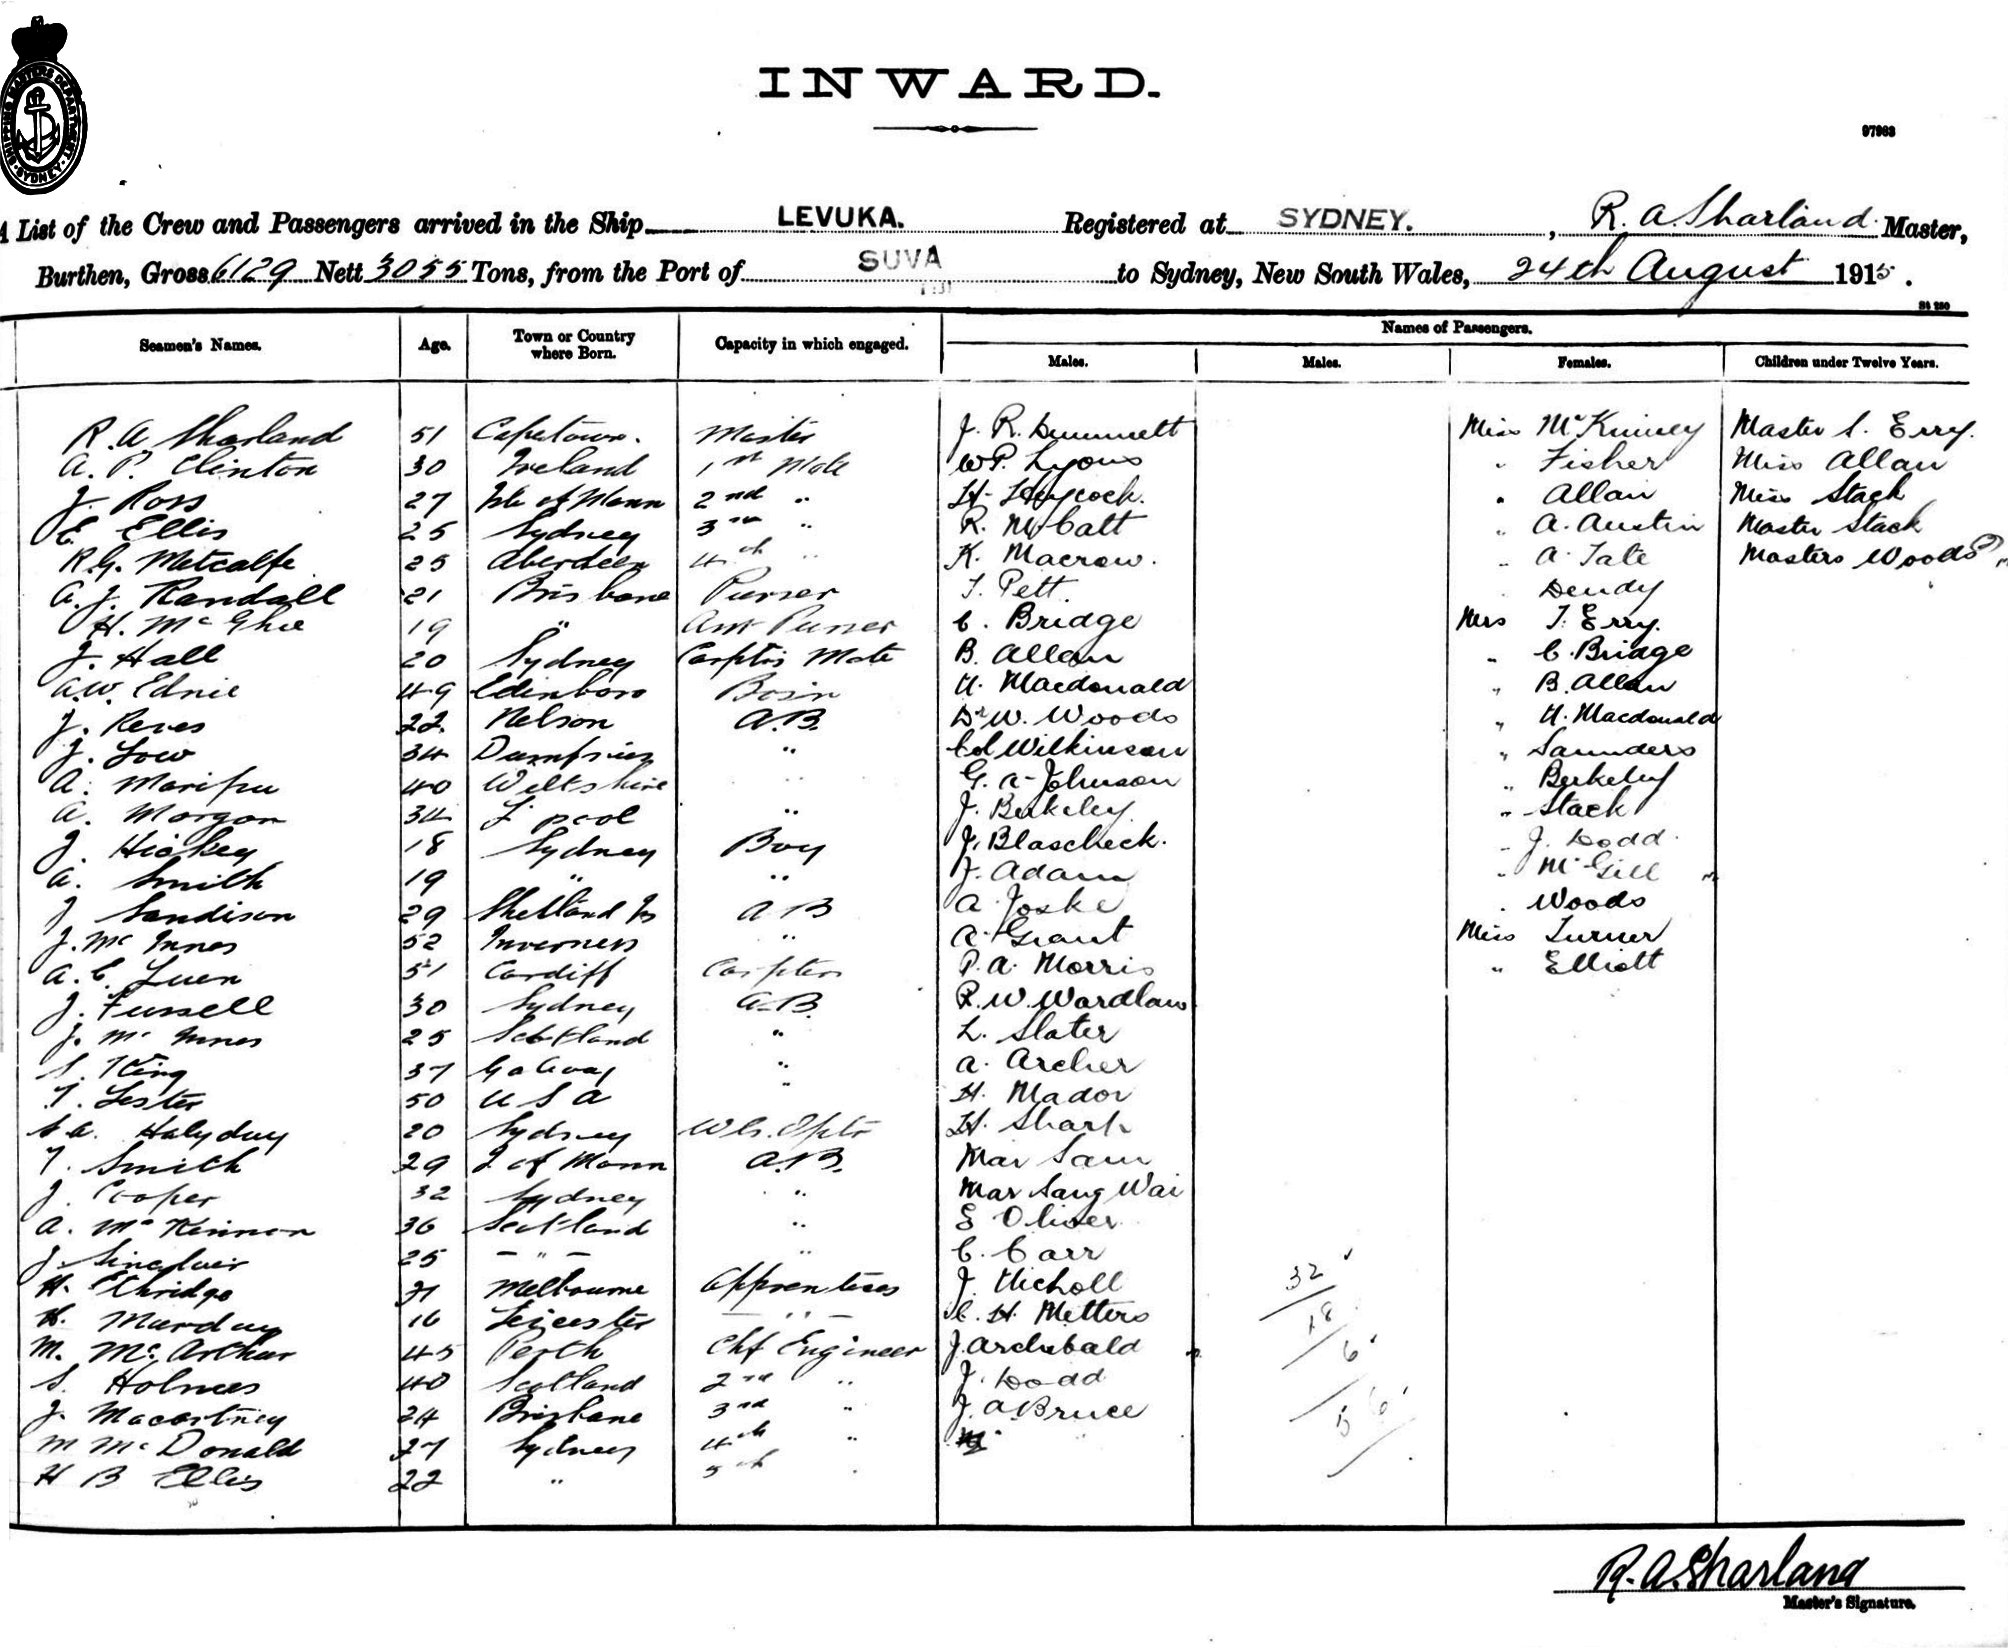 SHIPPING MASTERS DEPARTMENT SYDNEY
INWARD.
97963
A List of the Crew and Passengers arrived in the Ship LEVUKA. Registered at SYDNEY. , R. A. Sharland Master,
Burthen, Gross 6129 Nett 3055 Tons, from the Port of SUVA to Sydney, New South Wales, 24th August 1915.
St 250
Seamen's Names. Age. Town or Country where Born. Capacity in which engaged. Names of Passengers.
Males. Males. Females. Children under Twelve Years.
R. A Sharland 51 Capetown. Master J. R. Dummelt Miss McKinney Master S. Erry.
A. P. Clinton 30 Ireland 1st Mate W P. Lyons " Fisher Miss Allan
J. Ross 27 Isle of Mann 2nd " H. Heycock. " Allan Miss Stack
E. Ellis 25 Sydney 3rd " R. McCatt " A. Austin Master Stack
R. G. Metcalfe 25 Aberdeen 4th " K. Macrow. " A. Tate Masters Woods
A. J. Randall 21 Brisbane Purser T. Pett. " Dendy
H. McGhie 19 " Asst Purser C. Bridge Mrs T. Erry.
J. Hall 20 Sydney Carptrs Mate B. Allan " C. Bridge
A. W. Ednie 49 Edinboro Bosin U. Macdonald " B. Allan
J. Reves 22 Nelson A.B. Dr W. Woods " U. Macdonald
J. Low 34 Dumfries " Col Wilkinson " Saunders
A. 40 Wiltshire " G. A. Johnson " Berkeley
A. Morgan 34 L'pool " J. Berkeley. " Stack
J. Hickey 18 Sydney Boy J. Blascheck. " J. Dodd.
A. Smith 19 " " J. Adam " McGill
J Sandison 29 Shetland Is A B A. Joske " Woods
J. McInnes 52 Inverness " A. Grant Miss Turner
A. C. Luen 51 Cardiff Carpter P. A. Morris " Elliott
J. Fussell 30 Sydney A.B. R. W. Wardlaw
J. McInnes 25 Scotland " L. Slater
S. King 37 Galway " A. Archer
T. Lester 50 U S A " H. Mador
S. A. Halyduy 20 Sydney Wls. Optr H. Sharp
T. Smith 29 I. of Mann A.B. Mar Sam
J. Cooper 32 Sydney " Mar Sang Wai
A. McKinnon 36 Scotland " E Oliver
J. Sinclair 25 " " C. Carr
H. Ethridge 21 Melbourne Apprentices J. Nicholl
H. Murduy 16 Leicester " C. H. Metters
M. McArthur 45 Perth Chf Engineer J. Archibald
S. Holmes 40 Scotland 2nd " J. Dodd
J. Macartney 24 Brisbane 3rd " J. A. Bruce
M McDonald 27 Sydney 4th "
H B Ellis 22 " 5th "
32
18
6
56
R. A. Sharland
Master's Signature.